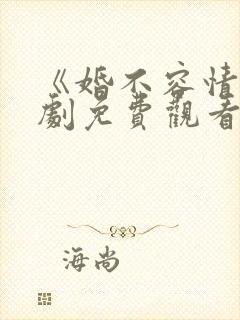 《婚不容情
劇免費觀看
海尚